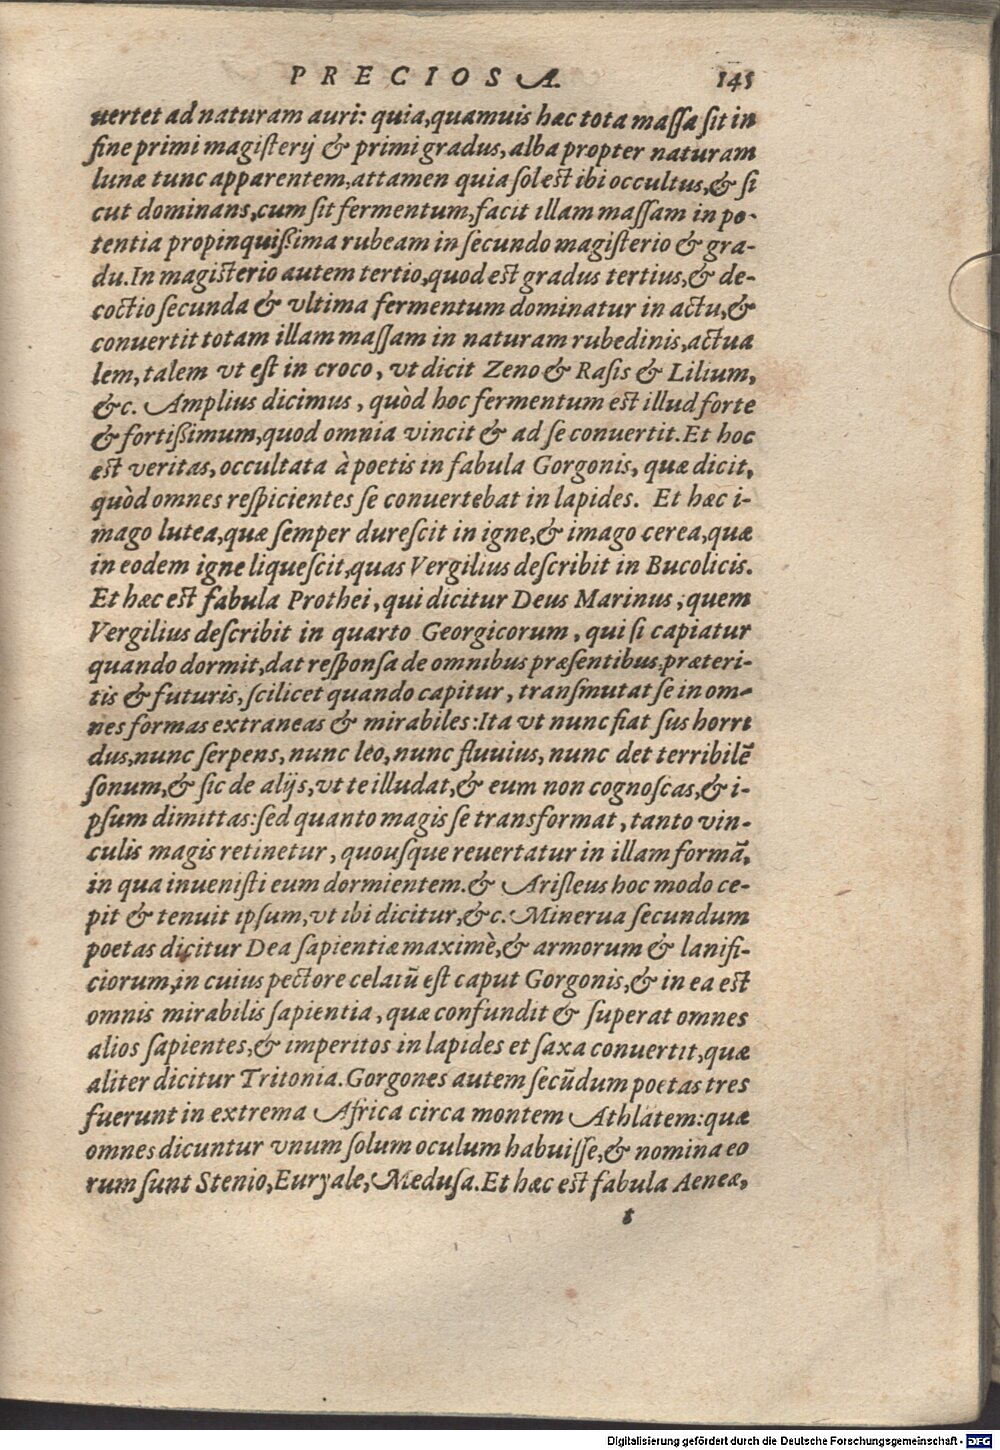 PRECIOSA. 145
uertet ad naturam auri: quia, quamuis hæc tota maſſa ſit in
fine primi magiſterij & primi gradus, alba propter naturam
lunæ tunc apparentem, attamen quia ſol eſt ibi occultus, & ſi
cut dominans, cum ſit fermentum, facit illam maſſam in po-
tentia propinquiſſima rubeam in ſecundo magiſterio & gra-
du. In magiſterio autem tertio, quod eſt gradus tertius, & de-
coctio ſecunda & vltima fermentum dominatur in actu, &
conuertit totam illam maſſam in naturam rubedinis, actua
lem, talem vt eſt in croco, vt dicit Zeno & Raſis & Lilium,
&c. Amplius dicimus, quòd hoc fermentum est illud forte
& fortiſſimum, quod omnia vincit & ad ſe conuertit. Et hoc
eſt veritas, occultata à poetis in fabula Gorgonis, quæ dicit,
quòd omnes reſpicientes ſe conuertebat in lapides. Et hæc i-
mago lutea, quæ ſemper dureſcit in igne, & imago cerea, quæ
in eodem igne liqueſcit, quas Vergilius deſcribit in Bucolicis.
Et hæc eſt fabula Prothei, qui dicitur Deus Marinus, quem
Vergilius deſcribit in quarto Georgicorum, qui ſi capiatur
quando dormit, dat reſponſa de omnibus præſentibus, præteri-
tis & futuris, ſcilicet quando capitur, tranſmutat ſe in om-
nes formas extraneas & mirabiles: Ita vt nunc fiat ſus horri
dus, nunc ſerpens, nunc leo, nunc fluuius, nunc det terribilē
ſonum, & ſic de alijs, vt te illudat, & eum non cognoſcas, & i-
pſum dimittas: ſed quanto magis ſe transformat, tanto vin-
culis magis retinetur, quouſque reuertatur in illam formā,
in qua inueniſti eum dormientem. & Ariſteus hoc modo ce-
pit & tenuit ipſum, vt ibi dicitur, &c. Minerua ſecundum
poetas dicitur Dea ſapientiæ maximè, & armorum & lanifi-
ciorum, in cuius pectore celatū eſt caput Gorgonis, & in ea eſt
omnis mirabilis ſapientia, quæ confundit & ſuperat omnes
alios ſapientes, & imperitos in lapides et ſaxa conuertit, quæ
aliter dicitur Tritonia. Gorgones autem ſecūdum poetas tres
fuerunt in extrema Africa circa montem Athlatem: quæ
omnes dicuntur vnum ſolum oculum habuiſſe, & nomina eo
rum ſunt Stenio, Euryale, Meduſa. Et hæc eſt fabula Aeneæ,
s
Digitalisierung gefördert durch die Deutsche Forschungsgemeinschaft - DFG